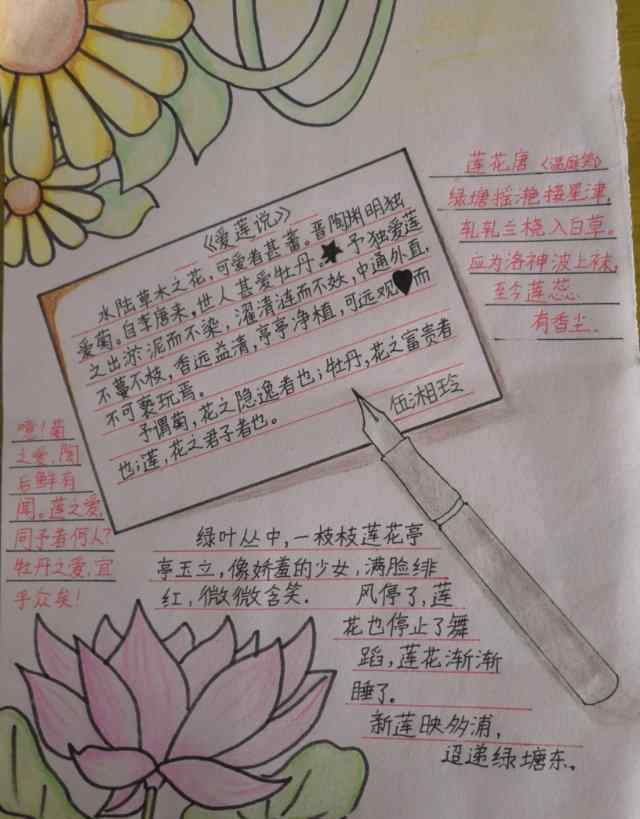 《爱莲说》
水陆草木之花，可爱者甚蕃。晋陶渊明独
爱菊。自李唐来，世人甚爱牡丹。予独爱莲
之出淤泥而不染，濯清涟而不妖，中通外直，
不蔓不枝，香远益清，亭亭净植，可远观而
不可亵玩焉。
予谓菊，花之隐逸者也；牡丹，花之富贵者
也；莲，花之君子者也。
伍湘玲
噫！菊
之爱，陶
后鲜有
闻。莲之爱，
同予者何人？
牡丹之爱，宜
乎众矣！
莲花唐《温庭筠》
绿塘摇滟接星津，
轧轧兰桡入白草。
应为洛神波上袜，
至今莲蕊
有香尘.
绿叶丛中，一枝枝莲花亭
亭玉立，像娇羞的少女，满脸绯
红，微微含笑. 风停了，莲
花也停止了舞
蹈，莲花渐渐
睡了。
新莲映多浦，
迢递绿塘东。